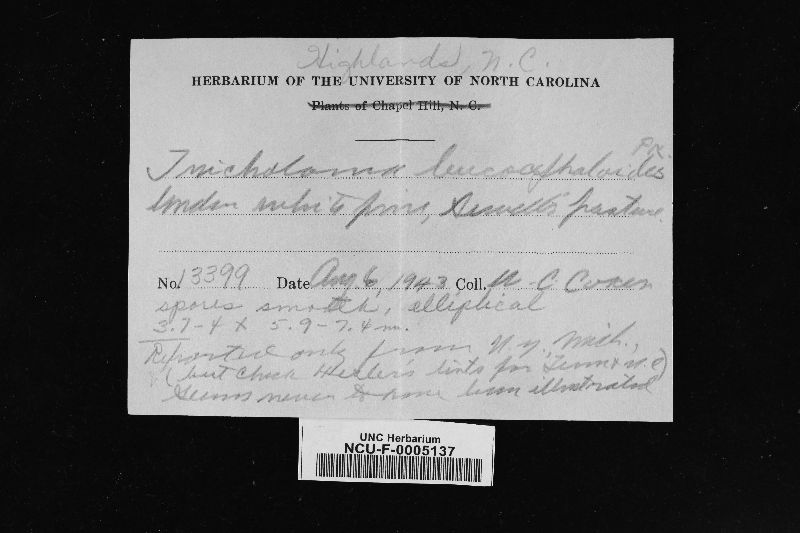 Highlands, N.C.
HERBARIUM OF THE UNIVERSITY OF NORTH CAROLINA
Plants of Chapel Hill, N. C.
Pk.
Tricholoma leucocephaloides
Under white pine, Sewell's pasture.
No. 13399 Date Aug 6, 1943 Coll. W. C. Coker
spores smooth, elliptical
3.7-4 x 5.9-7.4 m.
Reported only from N.Y., Mich.,
(but check Hesler's lists for Tenn & N.C)
Seems never to have been illustrated
UNC Herbarium
NCU-F-0005137